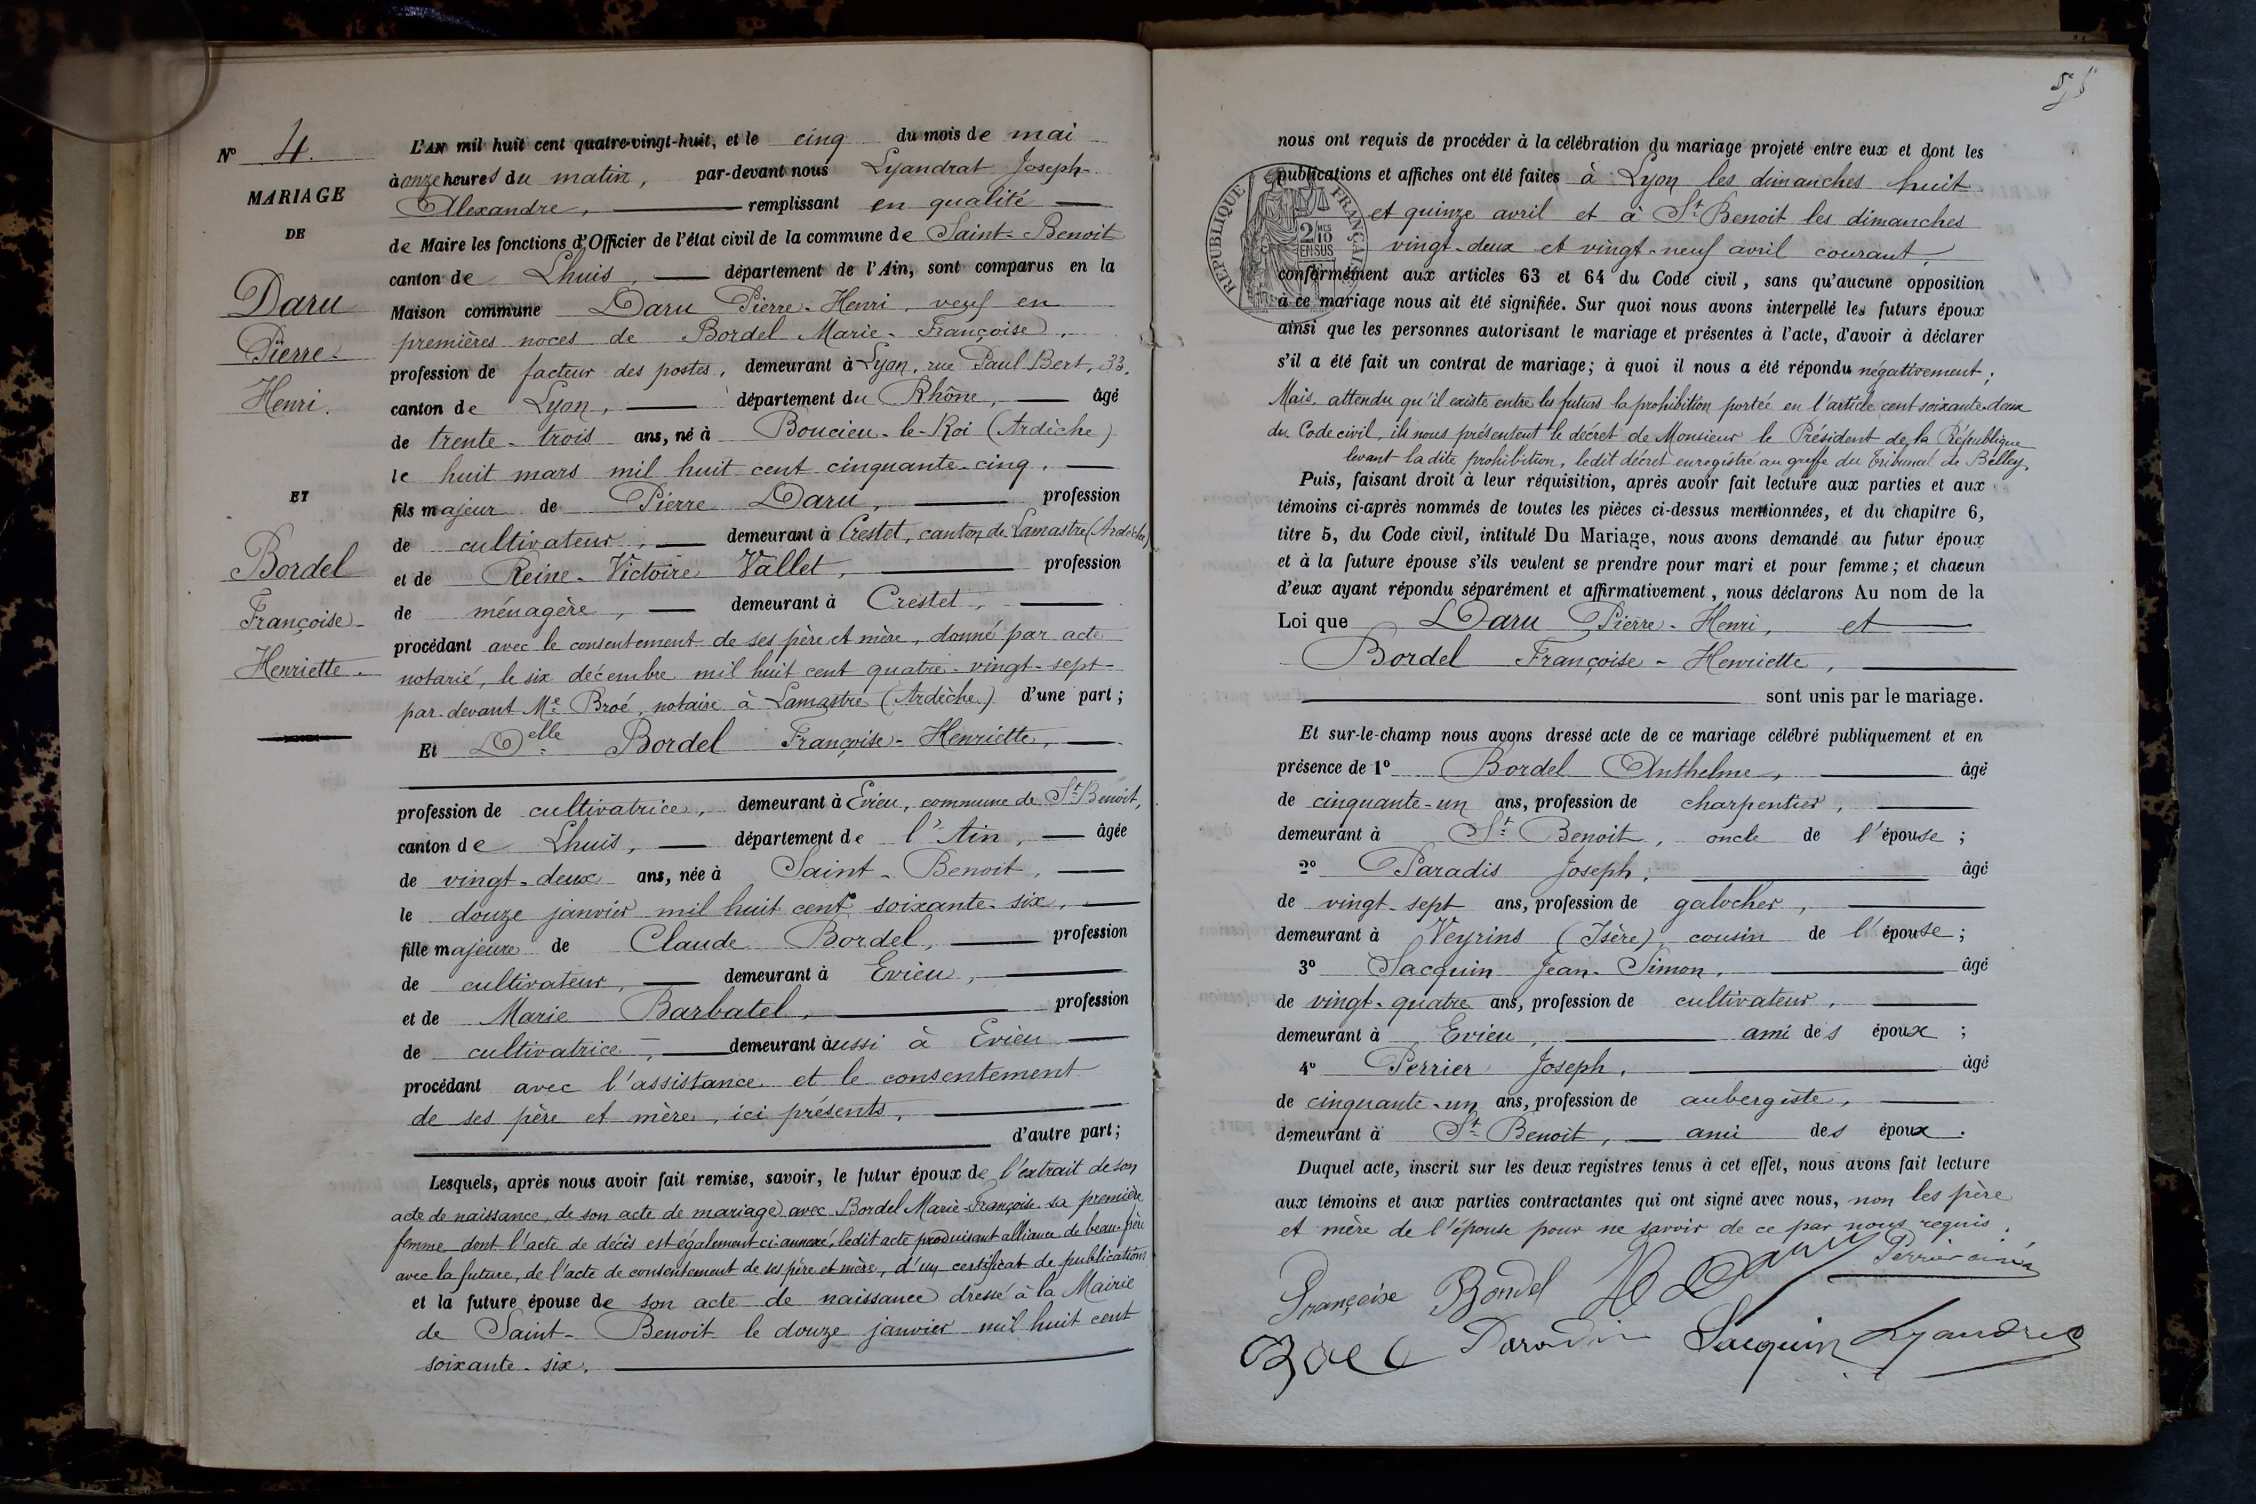 N° 4.
MARIAGE
DE
Daru
Pierre-
Henri.
ET
Bordel
Françoise-
Henriette.
L'AN mil huit cent quatre-vingt-huit, et le cinq du mois de mai
à onze heures du matin, par-devant nous Lyandrat Joseph-
Alexandre, remplissant en qualité
de Maire les fonctions d'Officier de l'état civil de la commune de Saint-Benoit
canton de Lhuis, département de l'Ain, sont comparus en la
Maison commune Daru Pierre-Henri, veuf en
premières noces de Bordel Marie-Françoise,
profession de facteur des postes, demeurant à Lyon, rue Paul Bert, 33,
canton de Lyon, département du Rhône, âgé
de trente-trois ans, né à Boucieu-le-Roi (Ardèche)
le huit mars mil huit cent cinquante-cinq,
fils majeur de Pierre Daru, profession
de cultivateur, demeurant à Crestet, canton de Lamastre (Ardèche)
et de Reine-Victoire Vallet, profession
de ménagère, demeurant à Crestet,
procédant avec le consentement de ses père et mère, donné par acte
notarié, le six décembre mil huit cent quatre-vingt-sept-
par-devant Me Broé, notaire à Lamastre (Ardèche) d'une part;
Et Delle Bordel Françoise-Henriette,
profession de cultivatrice, demeurant à Evieu, commune de St Benoit,
canton de Lhuis, département de l'Ain, âgée
de vingt-deux ans, née à Saint-Benoit,
le douze janvier mil huit cent soixante-six,
fille majeure de Claude Bordel, profession
de cultivateur, demeurant à Evieu,
et de Marie Barbatel, profession
de cultivatrice, demeurant aussi à Evieu
procédant avec l'assistance et le consentement
de ses père et mère, ici présents,
d'autre part;
Lesquels, après nous avoir fait remise, savoir, le futur époux de l'extrait de son
acte de naissance, de son acte de mariage avec Bordel Marie-Françoise sa première
femme dont l'acte de décès est également ci-annexé, ledit acte produisant alliance de beau-frère
avec la future, de l'acte de consentement de ses père et mère, d'un certificat de publications
et la future épouse de son acte de naissance dressé à la Mairie
de Saint-Benoit le douze janvier mil huit cent
soixante-six.
nous ont requis de procéder à la célébration du mariage projeté entre eux et dont les
publications et affiches ont été faites à Lyon les dimanches huit
et quinze avril et à St Benoit les dimanches
vingt-deux et vingt-neuf avril courant,
REPUBLIQUE FRANÇAISE
2/10 EN SUS
conformément aux articles 63 et 64 du Code civil, sans qu'aucune opposition
à ce mariage nous ait été signifiée. Sur quoi nous avons interpellé les futurs époux
ainsi que les personnes autorisant le mariage et présentes à l'acte, d'avoir à déclarer
s'il a été fait un contrat de mariage; à quoi il nous a été répondu négativement;
Mais, attendu qu'il existe entre les futurs la prohibition portée en l'article cent soixante-deux
du Code civil, ils nous présentent le décret de Monsieur le Président de la République
levant la dite prohibition, ledit décret enregistré au greffe du Tribunal de Belley,
Puis, faisant droit à leur réquisition, après avoir fait lecture aux parties et aux
témoins ci-après nommés de toutes les pièces ci-dessus mentionnées, et du chapitre 6,
titre 5, du Code civil, intitulé Du Mariage, nous avons demandé au futur époux
et à la future épouse s'ils veulent se prendre pour mari et pour femme; et chacun
d'eux ayant répondu séparément et affirmativement, nous déclarons Au nom de la
Loi que Daru Pierre-Henri, et
Bordel Françoise-Henriette,
sont unis par le mariage.
Et sur-le-champ nous avons dressé acte de ce mariage célébré publiquement et en
présence de 1° Bordel Anthelme, âgé
de cinquante-un ans, profession de charpentier,
demeurant à St Benoit, oncle de l'épouse;
2° Paradis Joseph, âgé
de vingt-sept ans, profession de galocher,
demeurant à Veyrins (Isère) cousin de l'épouse;
3° Sacquin Jean-Simon, âgé
de vingt-quatre ans, profession de cultivateur,
demeurant à Evieu, ami des époux;
4° Perrier Joseph, âgé
de cinquante-un ans, profession de aubergiste,
demeurant à St Benoit, ami des époux.
Duquel acte, inscrit sur les deux registres tenus à cet effet, nous avons fait lecture
aux témoins et aux parties contractantes qui ont signé avec nous, non les père
et mère de l'épouse pour ne savoir de ce par nous requis.
Françoise Bordel H Daru Perrier ainé
Paradis Sacquin Lyandrat